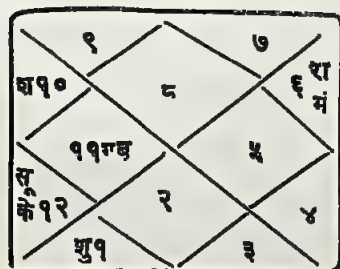 ९ ७
श१० ८ ६ रा
मं
११गबृ ५
सू
के१२ २ ४
शु१ ३